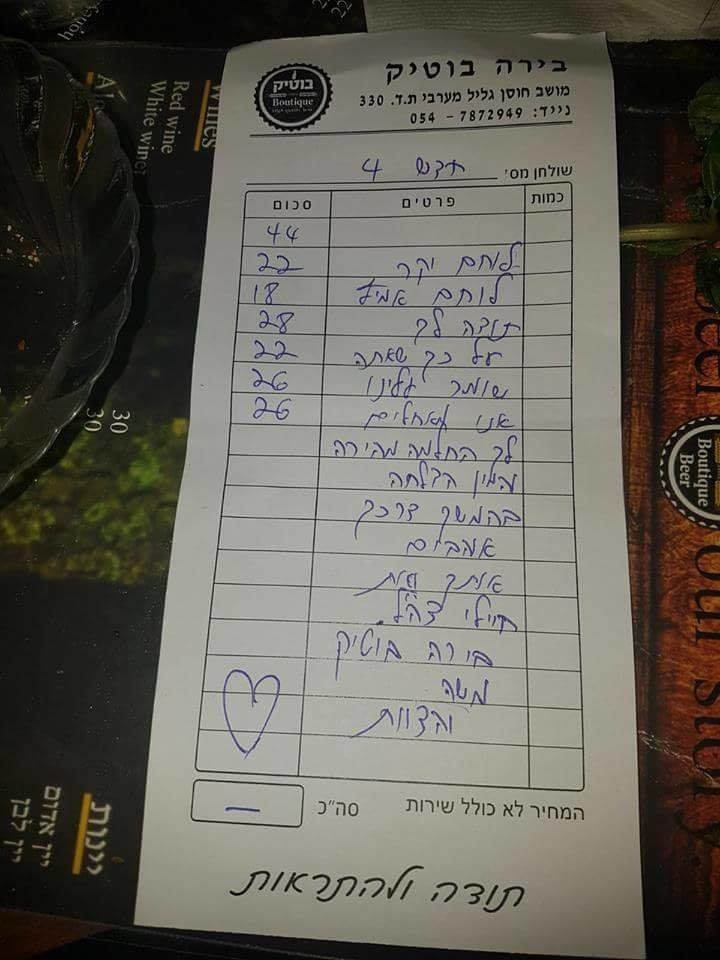 honey
22
Wines
Red wine
White wine
30
30
בוטיק
Boutique
בירה בוטיק
מושב חוסן גליל מערבי ת.ד. 330
נייד: 7872949 - 054
שולחן מס' חדש 4
כמות פרטים סכום
44
לוחם יקר 22
לוחם אמיץ 18
תודה לך 28
על כך שאתה 22
שומר עלינו 26
אנו מאחלים 26
לך החלמה מהירה
והמון הצלחה
בהמשך דרכך
אוהבים
אותך ואת
חיילי צה"ל.
בירה בוטיק
משה
והצוות
המחיר לא כולל שירות סה"כ —
תודה ולהתראות
Boutique
Beer
our story
יינות
יין אדום
יין לבן